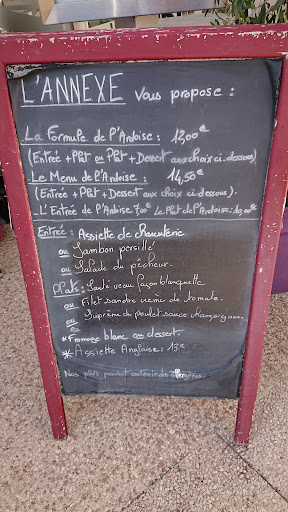 L'ANNEXE vous propose :
La Formule de l'Ardoise : 12,00€
(Entrée + Plat ou Plat + Dessert aux choix ci-dessous)
Le Menu de l'Ardoise : 14,50€
(Entrée + Plat + Dessert aux choix ci-dessous).
L'Entrée de l'Ardoise 7,00€ Le Plat de l'Ardoise: 10,00€
Entrée : Assiette de charcuterie
ou Jambon persillé
ou Salade du pêcheur.
Plats : Sauté veau façon blanquette
ou Filet sandre crème de tomate.
ou Suprême de poulet sauce
* Fromage blanc ou dessert.
* Assiette Anglaise : 13€
Nos plats peuvent contenir des allergènes